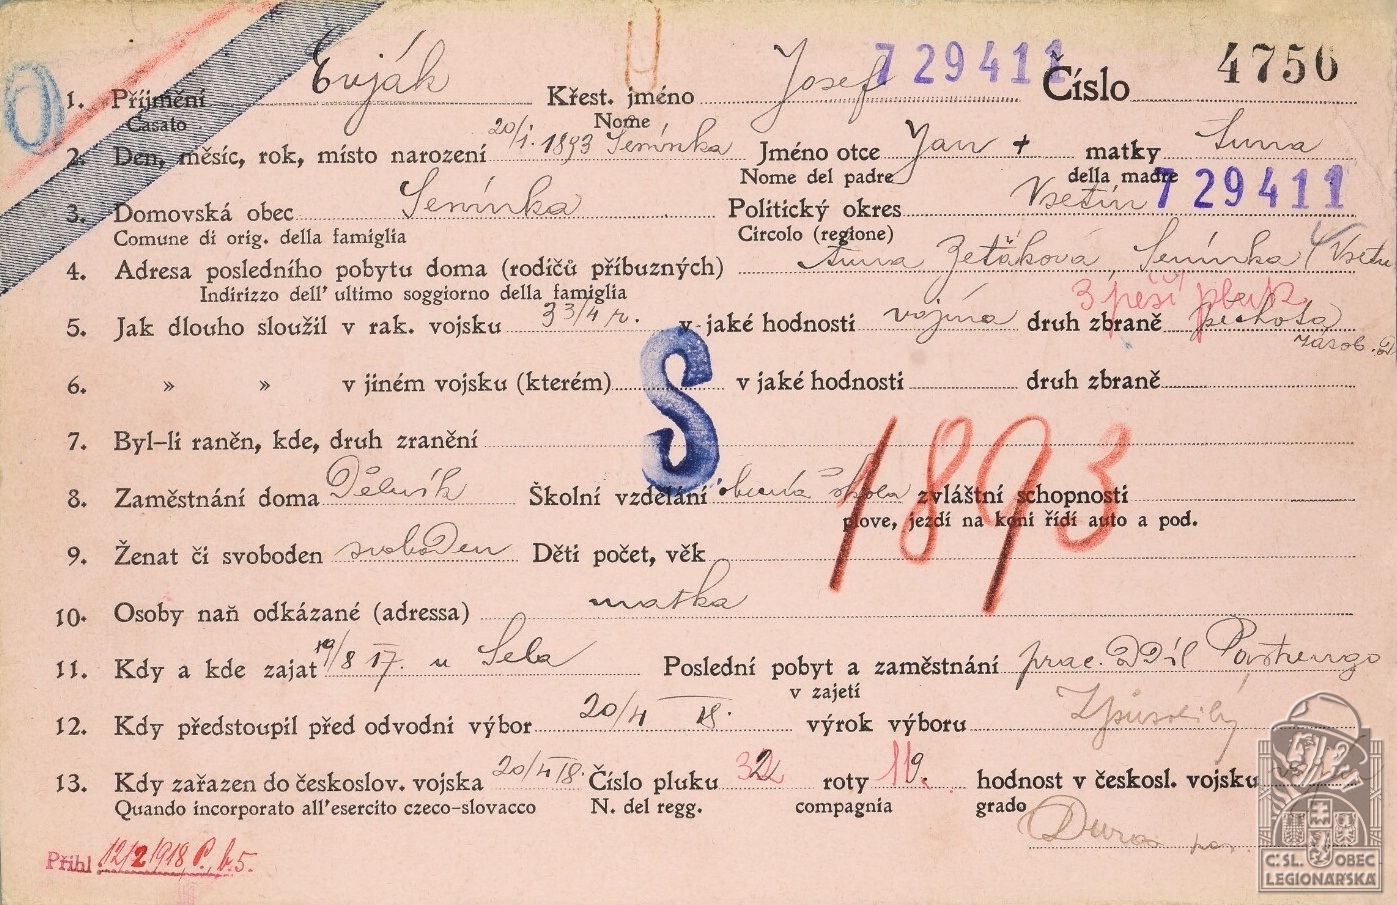 729411 4750
1. Příjmení Evják Křest. jméno Josef Číslo
Casato Nome
2. Den, měsíc, rok, místo narození 20/1. 1893 Senínka Jméno otce Jan + matky Anna
Nome del padre della madre
3. Domovská obec Senínka Politický okres Vsetín 729411
Comune di orig. della famiglia Circolo (regione)
4. Adresa posledního pobytu doma (rodičů příbuzných) Anna Senínka
Indirizzo dell' ultimo soggiorno della famiglia
3 pěší pluk
5. Jak dlouho sloužil v rak. vojsku 3 3/4 r. v jaké hodnosti vojína druh zbraně pěchota
zásob.
6. » » v jiném vojsku (kterém) v jaké hodnosti druh zbraně
S
7. Byl-li raněn, kde, druh zranění
1893
8. Zaměstnání doma Dělník Školní vzdělání obecná škola zvláštní schopnosti
plove, jezdí na koni řídí auto a pod.
9. Ženat či svoboden svoboden Děti počet, věk
10. Osoby naň odkázané (adressa) matka
11. Kdy a kde zajat 19/8 17. u Sela Poslední pobyt a zaměstnání prac. Oddíl
v zajetí
12. Kdy předstoupil před odvodní výbor 20/4 18. výrok výboru Způsobilý
13. Kdy zařazen do českoslov. vojska 20/4 18. Číslo pluku 32 roty hodnost v českosl. vojsku
Quando incorporato all'esercito czeco-slovacco N. del regg. compagnia grado
Přihl 12/2 1918
Č.SL. OBEC
LEGIONÁŘSKÁ